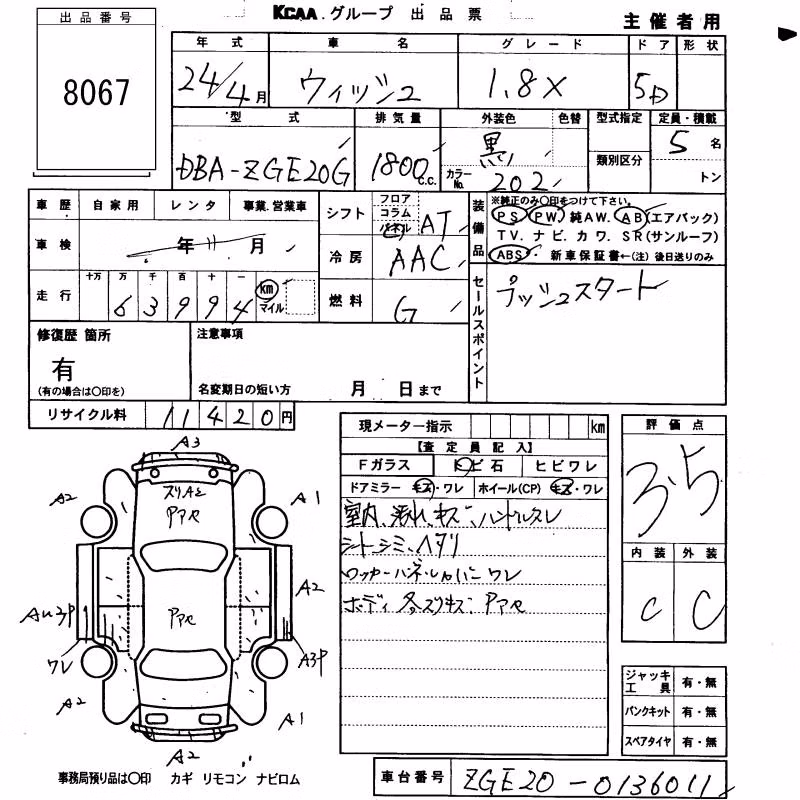 KCAA グループ 出品票
主催者用
出品番号
8067
年式 車名 グレード ドア 形状
24/4月 ウィッシュ 1.8X 5D
型式 排気量 外装色 色替 型式指定 定員・積載
DBA-ZGE20G 1800c.c. 黒 5名
カラーNo. 202 類別区分 トン
車歴 自家用 レンタ 事業.営業車
シフト フロア コラム パネル AT
装備品
※純正のみ〇印をつけて下さい。
PS PW 純AW. AB(エアバック)
TV. ナビ. カワ. SR(サンルーフ)
ABS 新車保証書←(注)後日送りのみ
車検 年 11 月
冷房 AAC
走行 十万 万 千 百 十 一
63994 km マイル
燃料 G
セールスポイント
プッシュスタート
修復歴 箇所
有
(有の場合は〇印を)
注意事項
名変期日の短い方 月 日まで
リサイクル料 11420円
現メーター指示 km
【査定員記入】
Fガラス トビ石 ヒビワレ
ドアミラー キズ・ワレ ホイール(CP) キズ・ワレ
室内、汚れ、キズ、ハンドルスレ
シートシミ、ヘタリ
ロッカーパネル、レババー ワレ
評価点
3.5
内装 外装
C C
A3
A2
A1
A2
ワレ
A3P
A2
A1
A2
ジャッキ工具 有・無
パンクキット 有・無
スペアタイヤ 有・無
事務局預り品は〇印 カギ リモコン ナビロム
車台番号 ZGE20-0136011